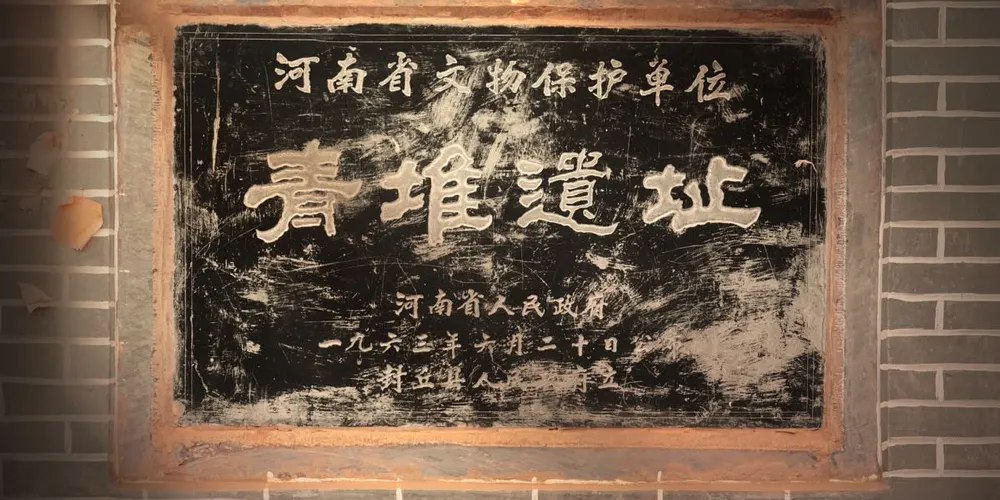 河南省文物保护单位
青堆遺址
河南省人民政府
一九六三年六月二十日公
封丘县人民 府立